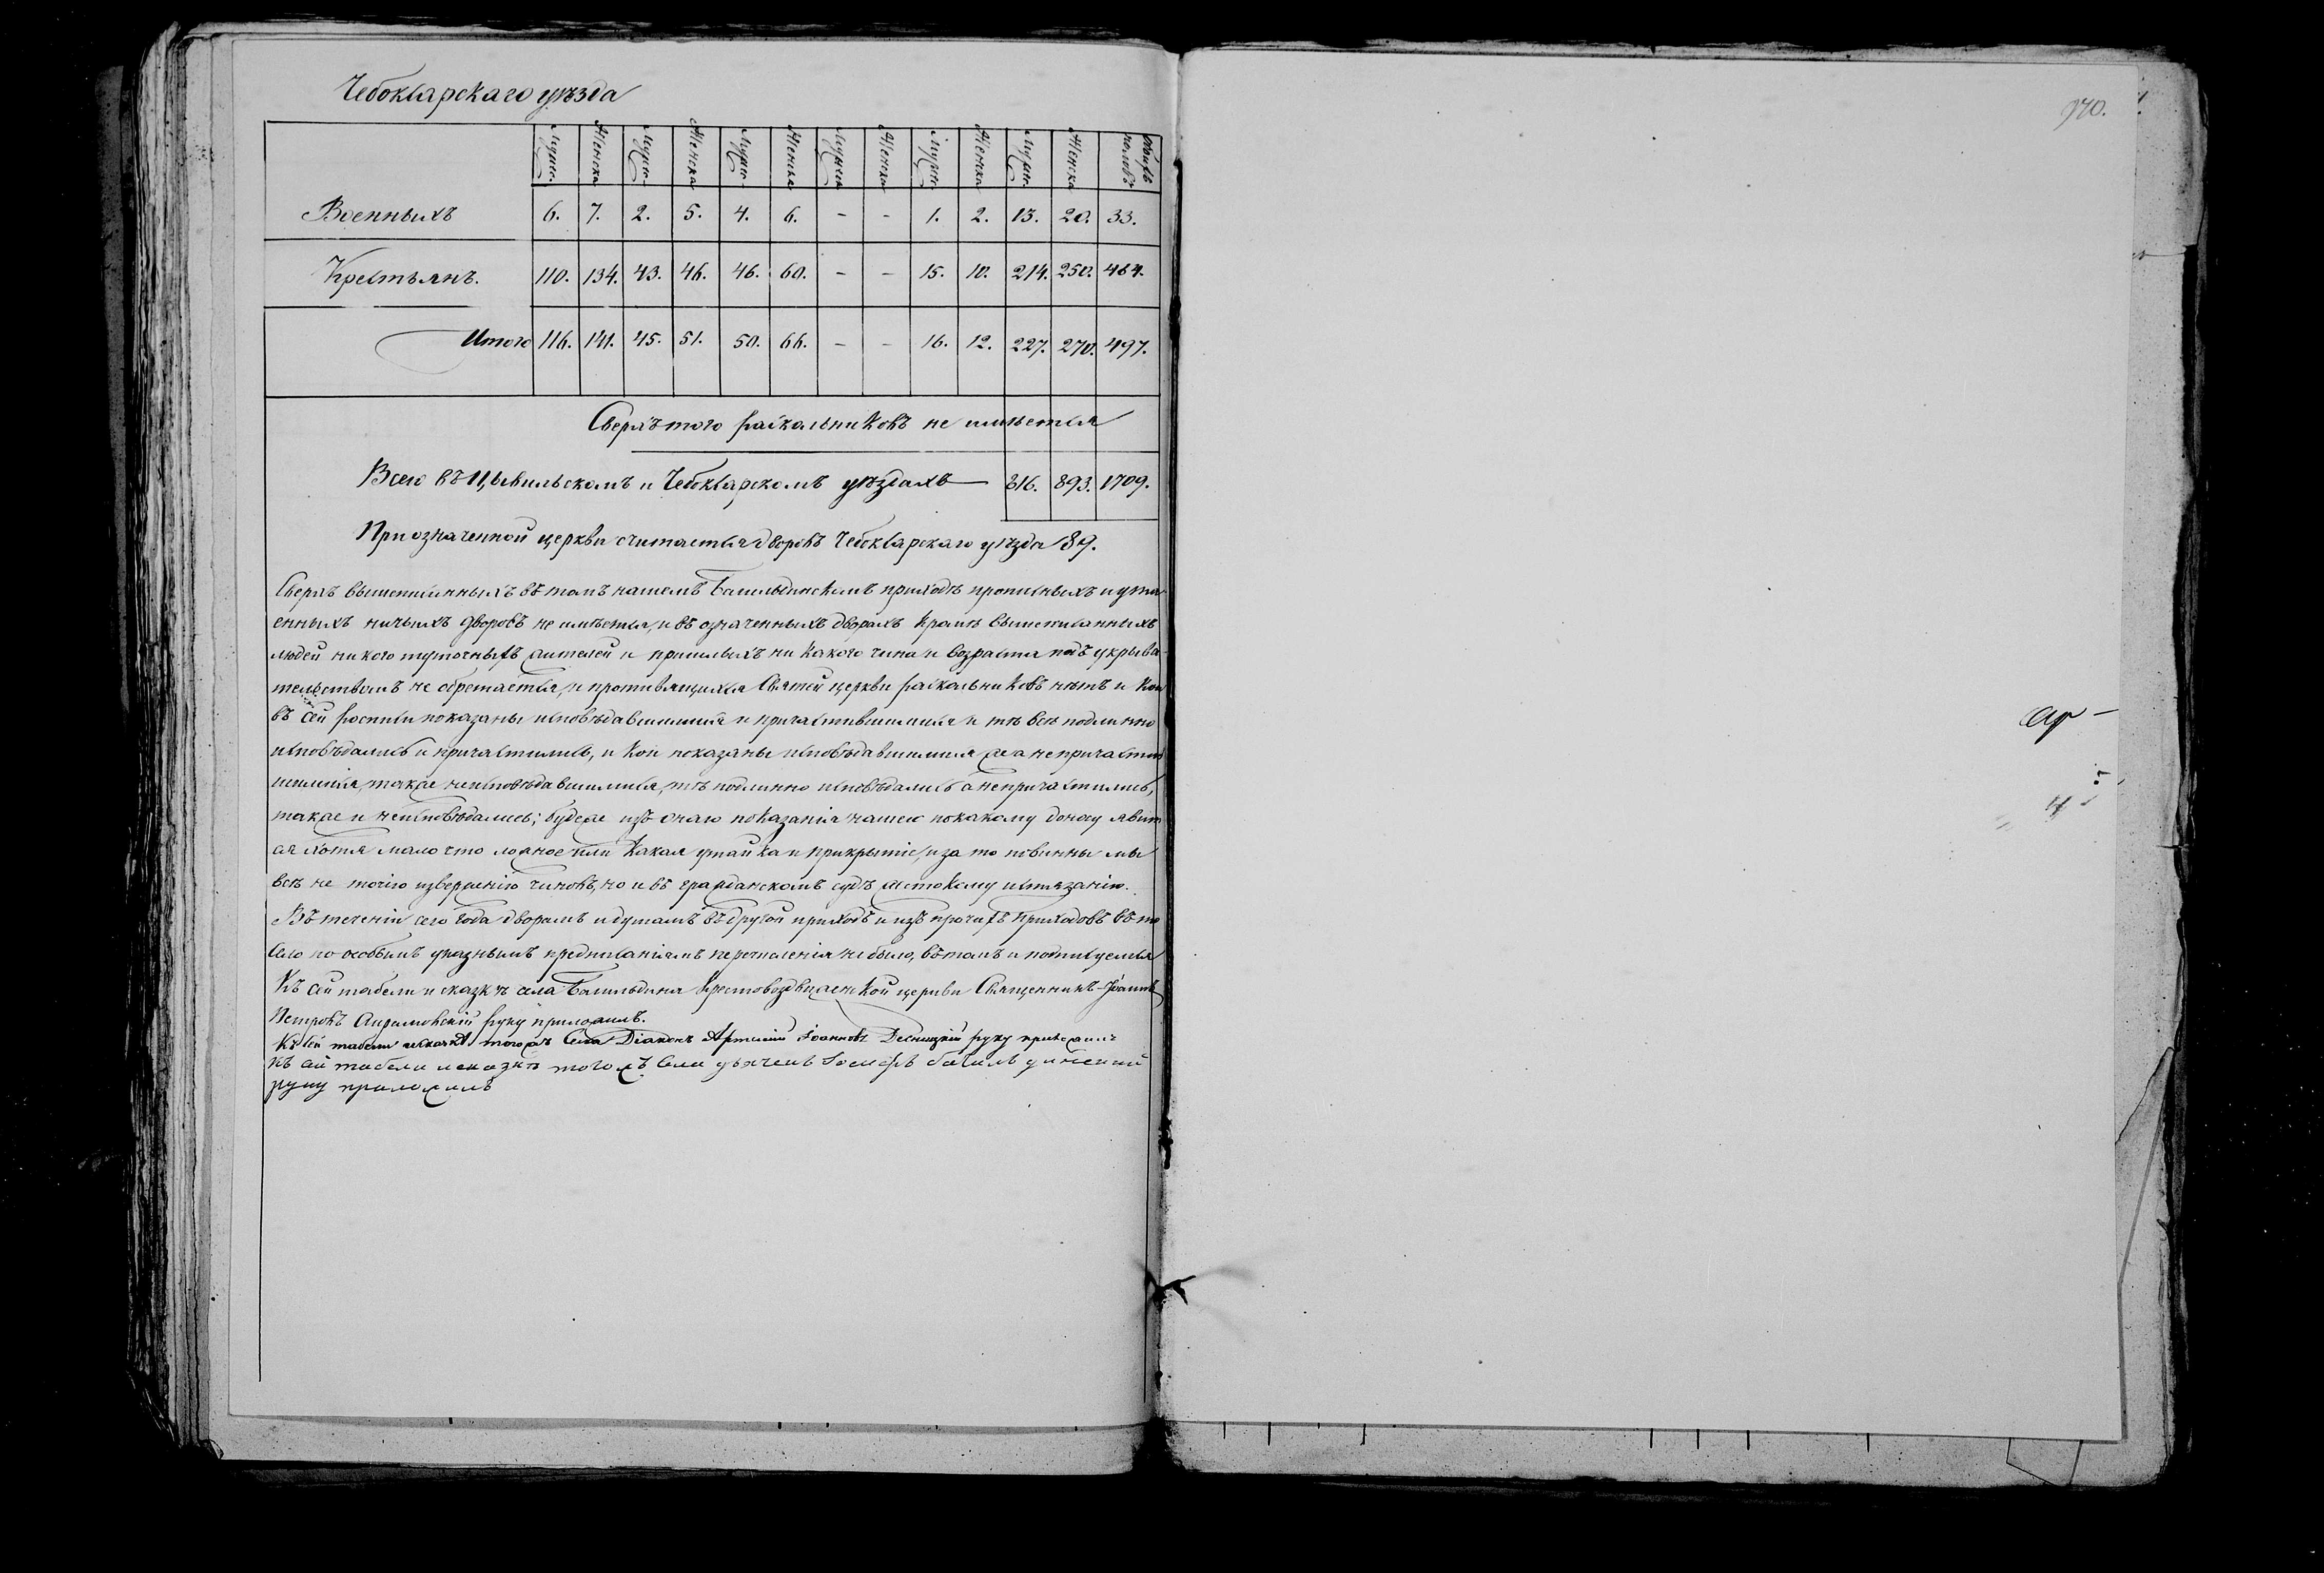 Чебоксарскаго уѣзда
970.
Мужес. Женска Мужес. Женска Мужес. Женска Мужес. Женска Мужес. Женска Мужес. Женска Обоихъ половъ
Военныхъ 6. 7. 2. 5. 4. 6. - - 1. 2. 13. 20. 33.
Крестьянъ. 110. 134. 43. 46. 46. 60. - - 15. 10. 214. 250. 464.
Итого 116. 141. 45. 51. 50. 66. - - 16. 12. 227. 270. 497.
Сверхъ того раскольниковъ не имѣется
Всего въ Цывильскомъ и Чебоксарскомъ уѣздахъ 816. 893. 1709.
При означенной церкви считается дворовъ Чебоксарскаго уѣзда 89.
Сверхъ вышеписанныхъ въ томъ нашемъ приходѣ прописныхъ и ута
енныхъ ничьихъ дворовъ не имѣется, и въ означенныхъ дворахъ кромѣ вышеписанныхъ
людей никого туточныхъ жителей и пришлыхъ ни какого чина и возраста подъ укрыва-
тельствомъ не обретается, и противящихся Святой церкви раскольниковъ нѣтъ и кои
въ сей росписи показаны исповѣдавшимися и причастившимися и тѣ всѣ подлинно
исповѣдались и причастились, и кои показаны исповѣдавшимися же а не причастив
шимися, также неисповѣдавшимися, тѣ подлинно исповѣдались а не причастились,
также и неисповѣдались; будеже изъ онаго показанія нашего по какому доносу явит
ся хотя мало что ложное или какая утайка и прикрытіе, и за то повинны мы
всѣ не точію изверженію чиновъ, но и въ гражданскомъ судѣ жестокому истязанію.
Въ теченіи сего года дворамъ и душамъ въ другой приходъ и изъ прочихъ приходовъ въ то
село по особымъ указнымъ предписаніямъ перечисленія не было, въ томъ и подписуемся
Къ сей табели и сказкѣ села Крестовоздвиженской церкви Священникъ Іоаннъ
Петровъ руку приложилъ.
Къ сей табели и сказкѣ тогожъ Села Діаконъ Артемій Іоанновъ Десницкій руку приложилъ
Къ сей табели и сказкѣ тогожъ Села дьячекъ Іосифъ
руку приложилъ